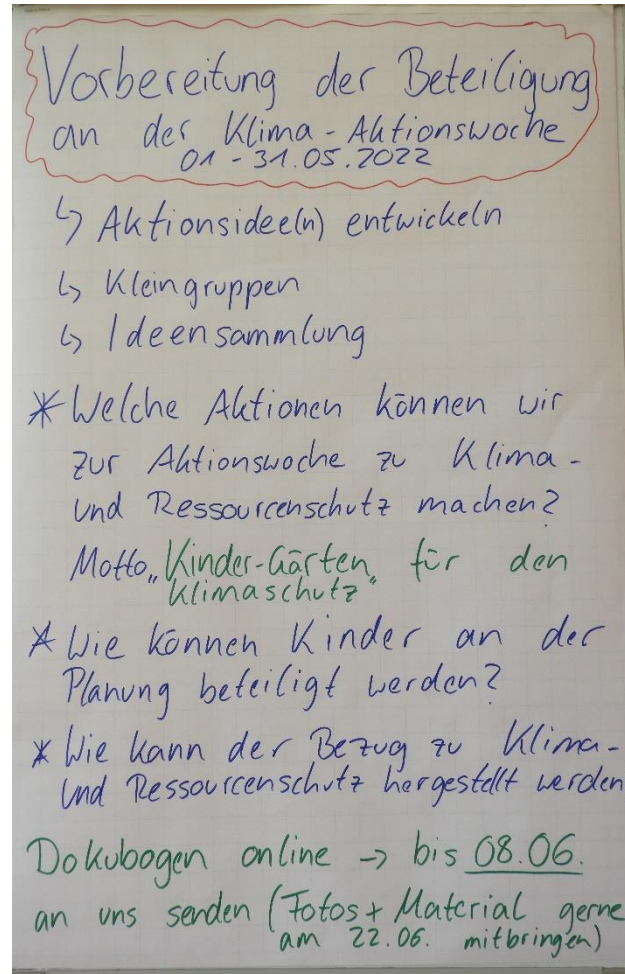 Vorbereitung der Beteiligung
an der Klima-Aktionswoche
01-31.05.2022
↳ Aktionsidee(n) entwickeln
↳ Kleingruppen
↳ Ideensammlung
* Welche Aktionen können wir
zur Aktionswoche zu Klima-
und Ressourcenschutz machen?
Motto „Kinder-Gärten für den
Klimaschutz“
* Wie können Kinder an der
Planung beteiligt werden?
* Wie kann der Bezug zu Klima-
und Ressourcenschutz hergestellt werden
Dokubogen online → bis 08.06.
an uns senden (Fotos + Material gerne
am 22.06. mitbringen)